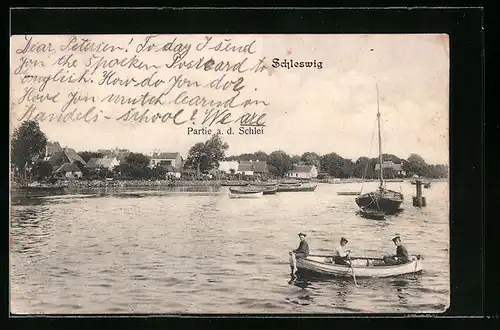 Dear Petersen! To day I send
you the spocken Postcard to
english. How do you do?
Have you mutch learnd on
Handels-school? We are
Schleswig
Partie a. d. Schlei